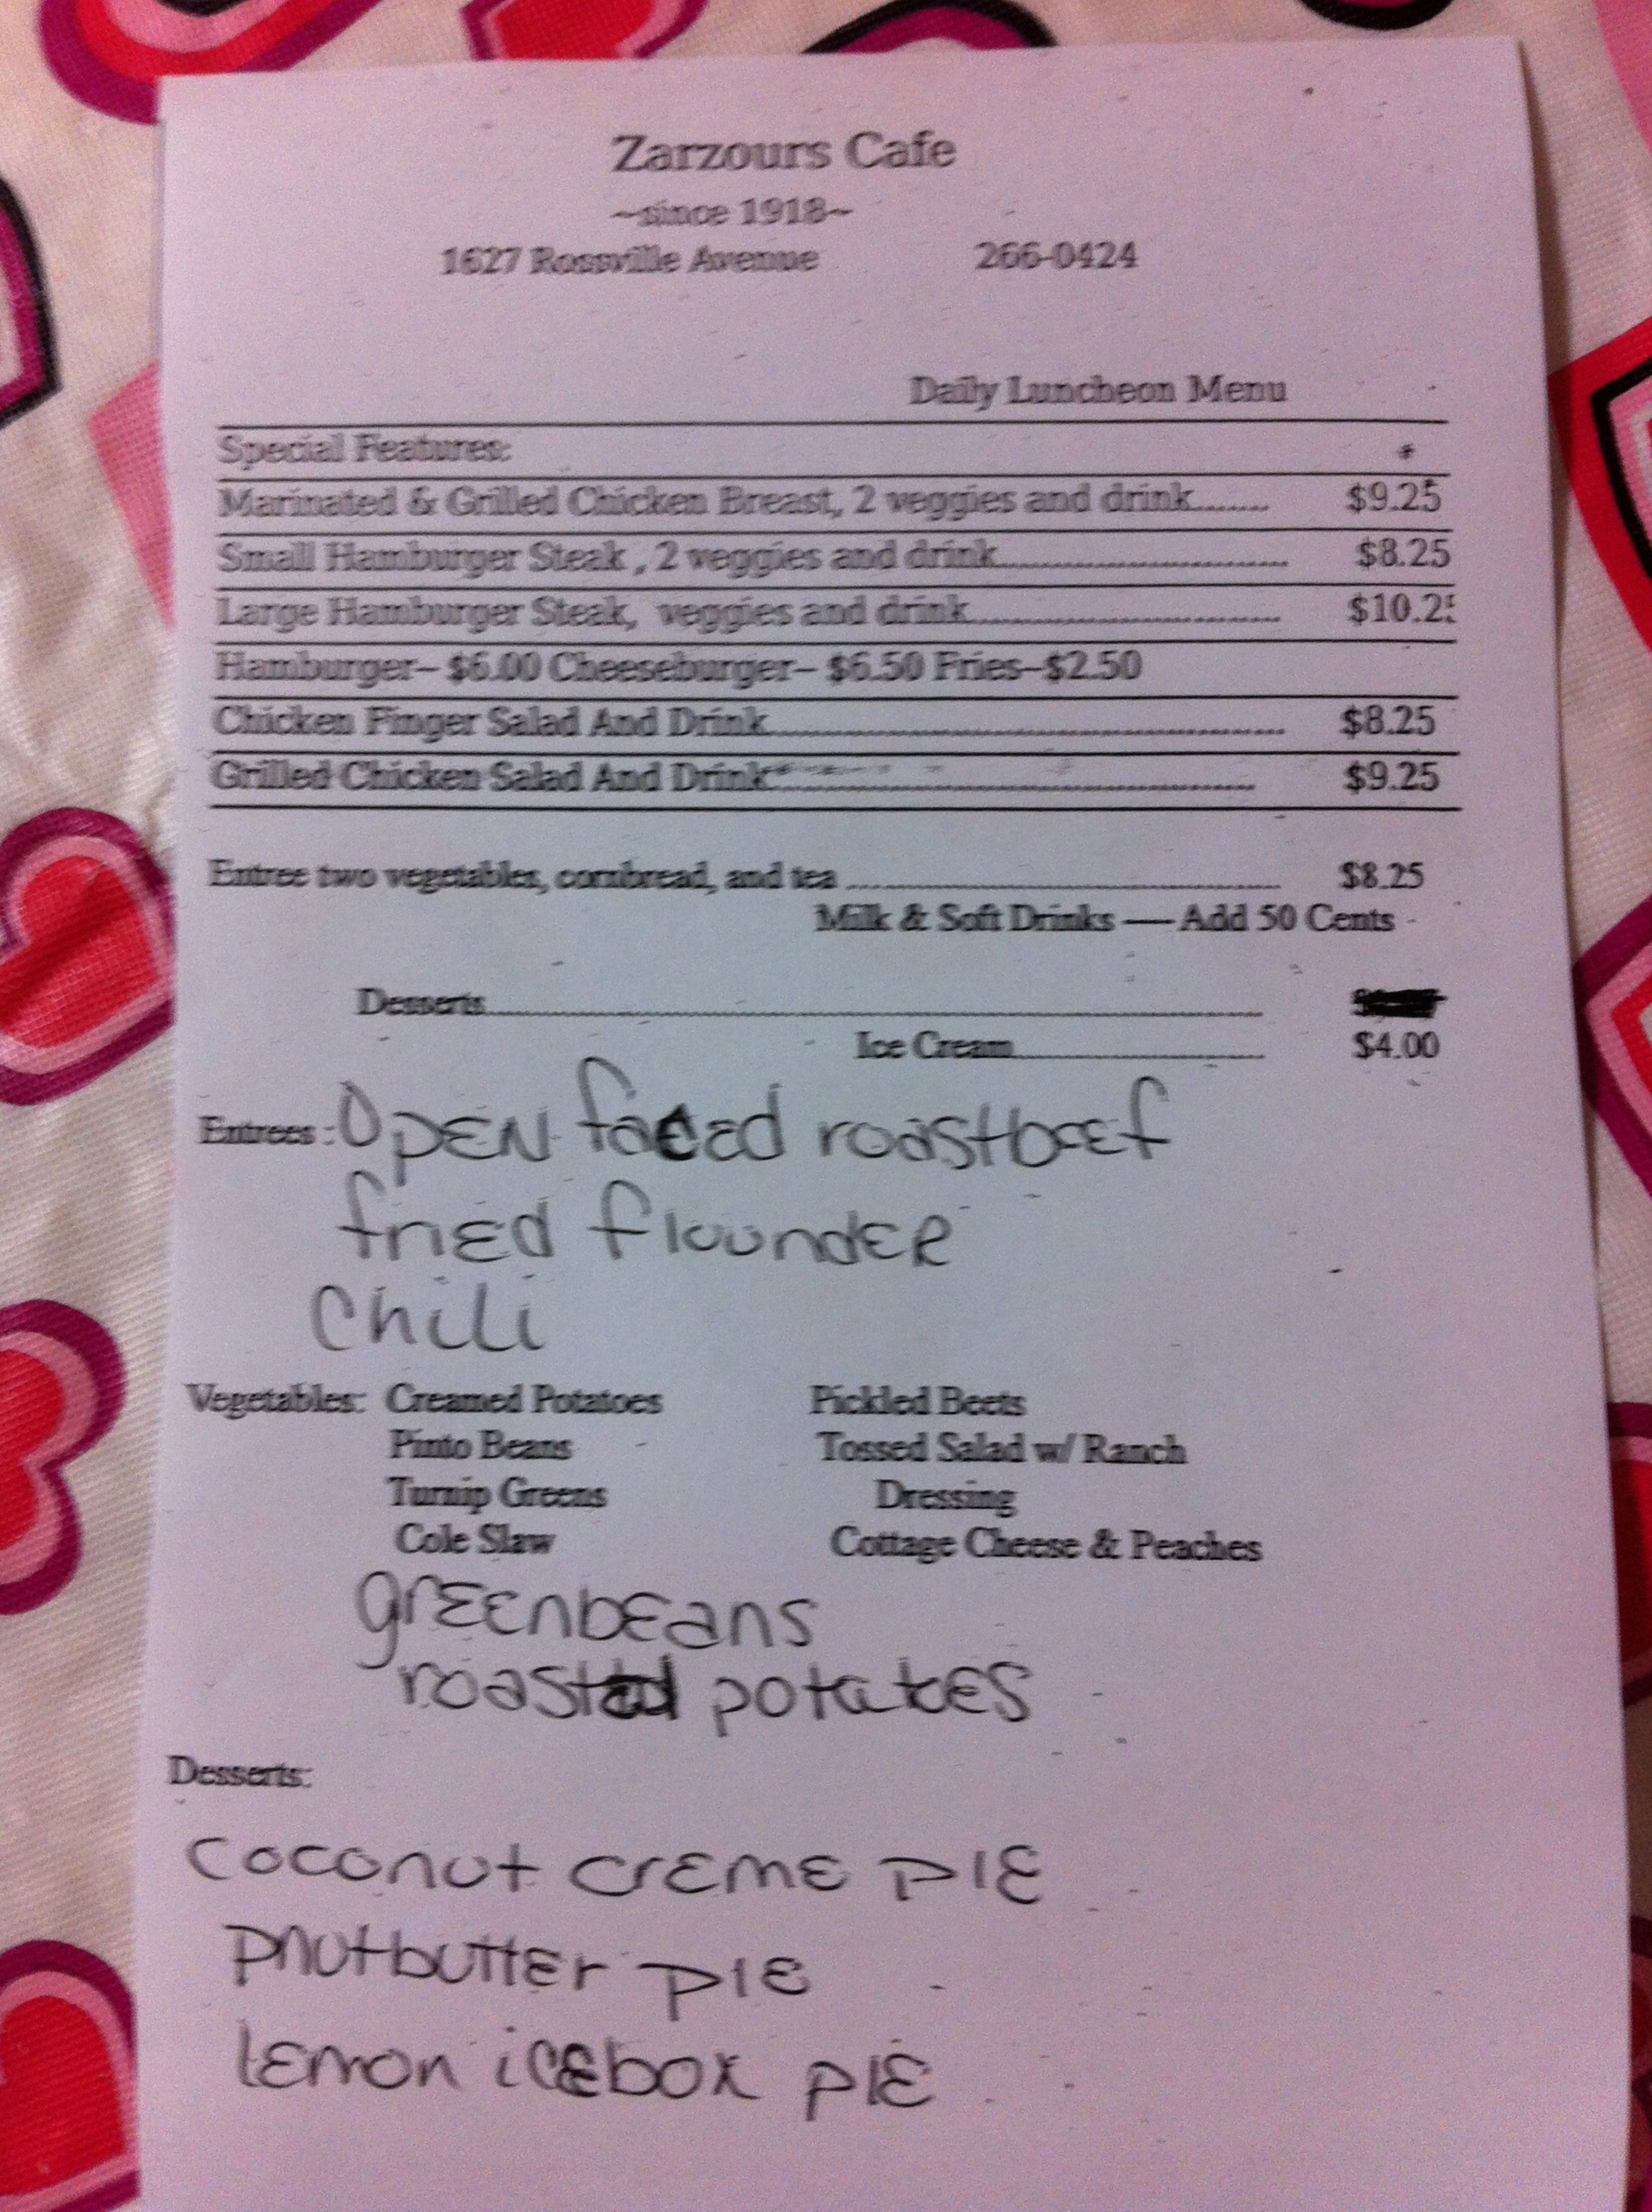 Zarzours Cafe
~since 1918~
1627 Rossville Avenue 266-0424
Daily Luncheon Menu
Special Features:
Marinated & Grilled Chicken Breast, 2 veggies and drink....... $9.25
Small Hamburger Steak , 2 veggies and drink................................ $8.25
Large Hamburger Steak, veggies and drink................................... $10.25
Hamburger– $6.00 Cheeseburger– $6.50 Fries–$2.50
Chicken Finger Salad And Drink............................................................ $8.25
Grilled Chicken Salad And Drink........................................................ $9.25
Entree two vegetables, cornbread, and tea ........................................................ $8.25
Milk & Soft Drinks — Add 50 Cents
Desserts........................................................................................
Ice Cream................................ $4.00
Entrees: Open faced roastbeef
fried flounder
Chili
Vegetables: Creamed Potatoes Pickled Beets
Pinto Beans Tossed Salad w/ Ranch
Turnip Greens Dressing
Cole Slaw Cottage Cheese & Peaches
greenbeans
roasted potatoes
Desserts:
coconut creme pie
pnutbutter pie
lemon icebox pie